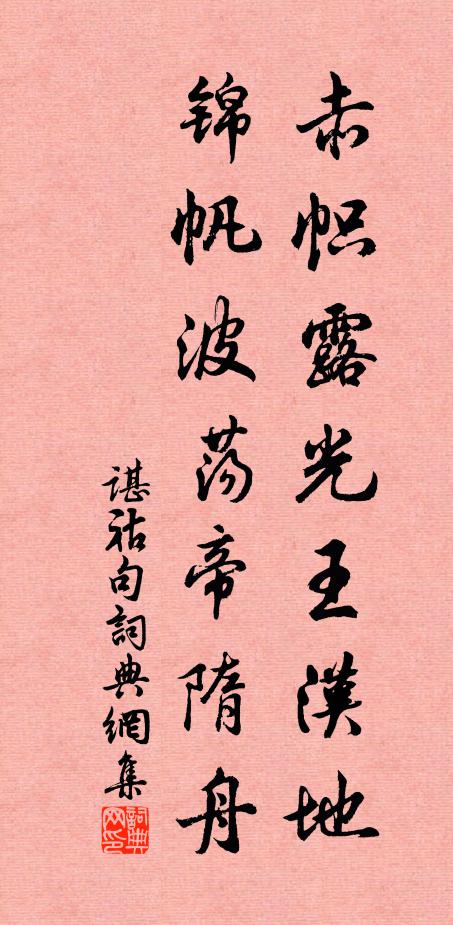 赤帜露光王漢地
锦帆波荡帝隋舟
谌祜句詞典網集
詞典网印